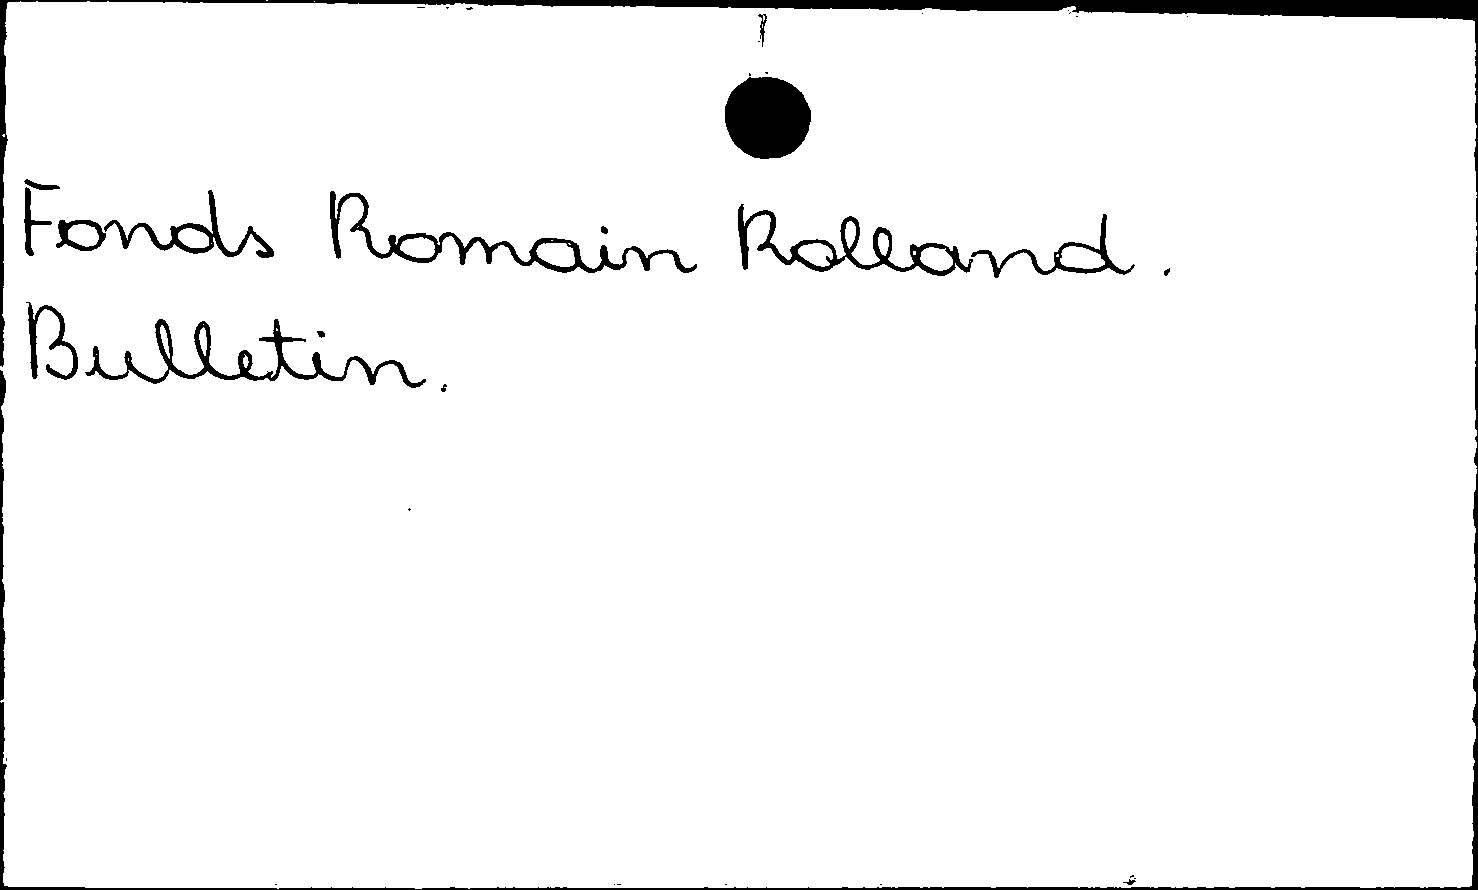 Fonds Romain Rolland.
Bulletin.